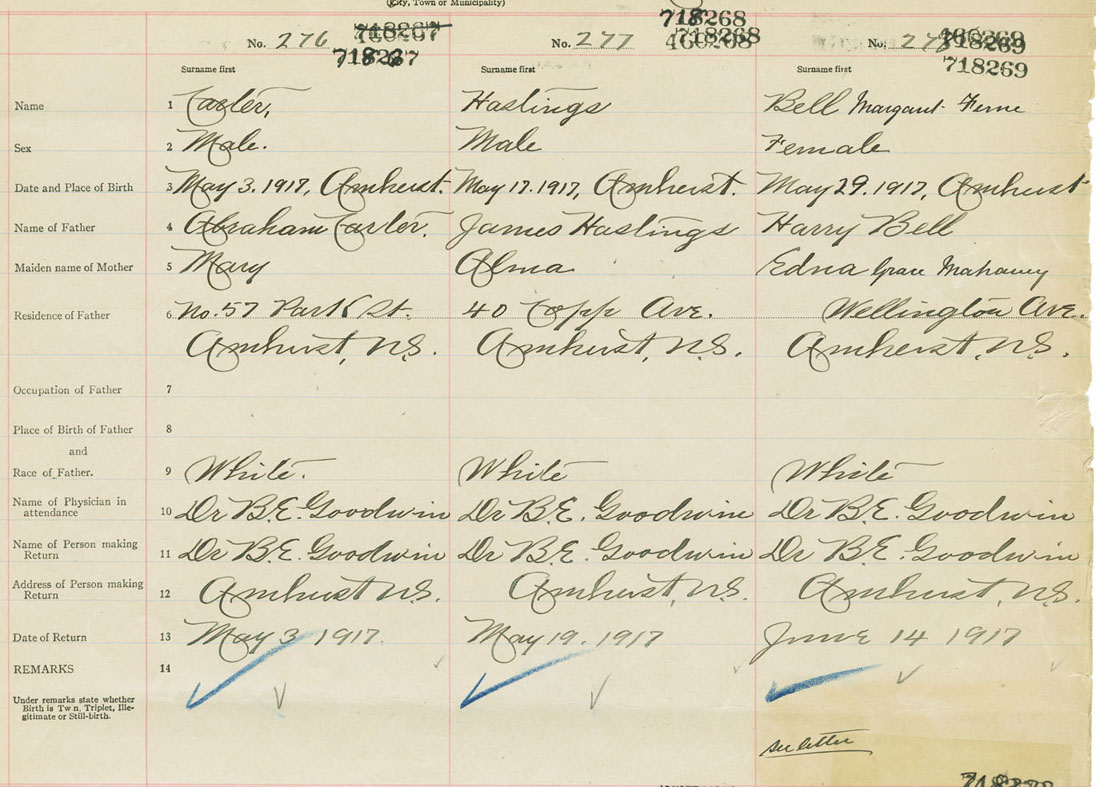 (City, Town or Municipality)
No. 276 718267
718267
No. 277 718268
718268
No. 718269
718269
Surname first Surname first Surname first
Name 1 Carter, Hastings Bell Margaret Ferne
Sex 2 Male. Male Female
Date and Place of Birth 3 May 3. 1917, Amherst. May 17. 1917, Amherst. May 29. 1917, Amherst
Name of Father 4 Abraham Carter. James Hastings Harry Bell
Maiden name of Mother 5 Mary Alma Edna Grace Mahaney
Residence of Father 6 No. 57 Park St. 40 Copp Ave. Wellington Ave.
Amherst, N.S. Amherst, N.S. Amherst, N.S.
Occupation of Father 7
Place of Birth of Father 8
and
Race of Father. 9 White. White White
Name of Physician in
attendance 10 Dr B.E. Goodwin Dr B.E. Goodwin Dr B.E. Goodwin
Name of Person making
Return 11 Dr B.E. Goodwin Dr B.E. Goodwin Dr B.E. Goodwin
Address of Person making
Return 12 Amherst N.S. Amherst, N.S. Amherst, N.S.
Date of Return 13 May 3 1917. May 19. 1917 June 14 1917
REMARKS 14
Under remarks state whether
Birth is Twin, Triplet, Ille-
gitimate or Still-birth.
see letter